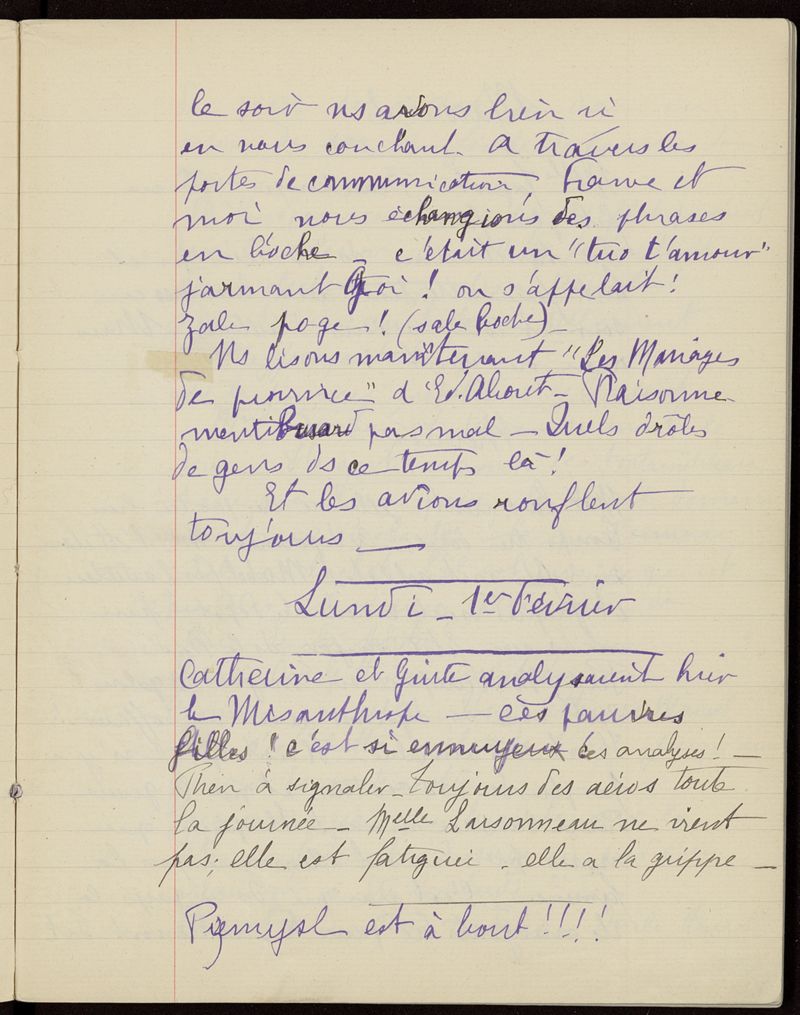 le soir ns avons bien ri
en nous couchant. A travers les
portes de communication, France et
moi nous échangions des phrases
en boche _ c'était un "tuo t'amour"
j'armant Qoi ! on s'appelait !
zale poge ! (sale boche) _
Ns lisons maintenant "Les Mariages
de province" d'Ed. About _ Raisonne-
ment pas mal _ Quels drôles
de gens ds ce temps là !
Et les avions ronflent
toujours __
Lundi _ 1er Février
Catherine et Ginte analysaient hier
le Misanthrope — ces pauvres
filles ! c'est si ennuyeux ces analyses ! —
Rien à signaler _ Toujours des aéros toute
la journée _ Melle Larsonneau ne vient
pas ; elle est fatiguée _ elle a la grippe _
Pzemysl est à bout !!!!